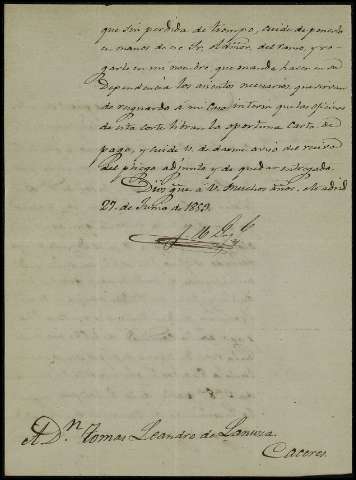 que sin perdida de tiempo, cuide de ponerlo
en manos de ese Sr. del ramo, y ro-
garle en mi nombre que mande hacer en su
Dependencia los asientos necesarios, que sirvan
de resguardo á mi interin que las oficinas
de esta corte libran la oportuna Carta de
pago, y cuide V. de darme aviso del recivo
del pliego adjunto y de quedar entregado.
Dios gue. á V. muchos años. Madrid
27. de Junio de 1859.
A Dn. Tomas Leandro de Lanuza.
Caceres.